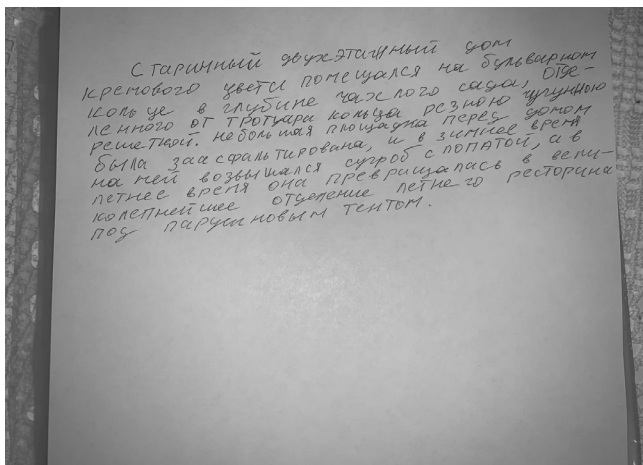 Старинный двухэтажный дом
кремового цвета помещался на бульварном
кольце в глубине чахлого сада, отде-
ленного от тротуара кольца резною чугунною
решеткой. Небольшая площадка перед домом
была заасфальтирована, и в зимнее время
на ней возвышался сугроб с лопатой, а в
летнее время она превращалась в вели-
колепнейшее отделение летнего ресторана
под парусиновым тентом.